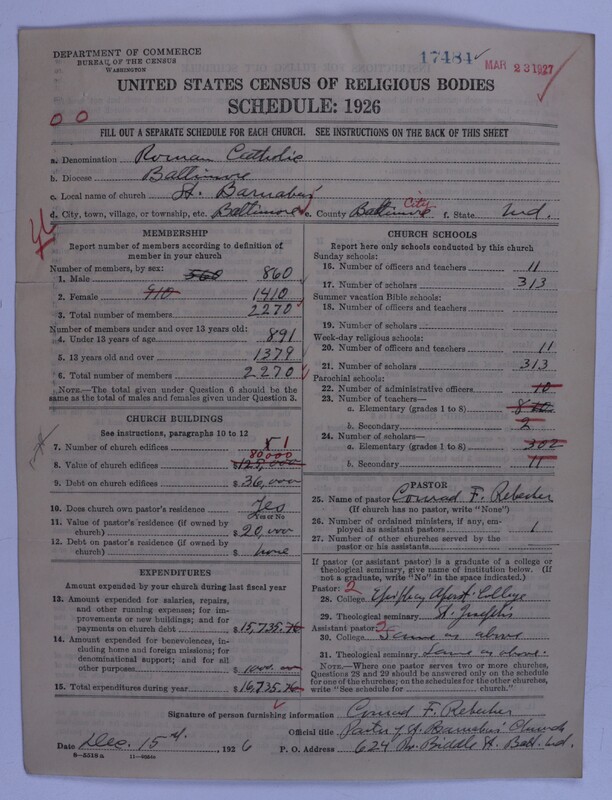 DEPARTMENT OF COMMERCE
BUREAU OF THE CENSUS
WASHINGTON
17484
MAR 23 1927
UNITED STATES CENSUS OF RELIGIOUS BODIES
SCHEDULE: 1926
0 0
FILL OUT A SEPARATE SCHEDULE FOR EACH CHURCH. SEE INSTRUCTIONS ON THE BACK OF THIS SHEET
a. Denomination Roman Catholic
b. Diocese Baltimore
c. Local name of church St. Barnabas
d. City, town, village, or township, etc. Baltimore e. County Baltimore City f. State Md.
MEMBERSHIP
Report number of members according to definition of
member in your church
Number of members, by sex:
1. Male 560 860
2. Female 910 1410
3. Total number of members 2270
Number of members under and over 13 years old:
4. Under 13 years of age 891
5. 13 years old and over 1379
6. Total number of members 2270
NOTE.—The total given under Question 6 should be
the same as the total of males and females given under Question 3.
CHURCH BUILDINGS
See instructions, paragraphs 10 to 12
7. Number of church edifices 1
80,000
8. Value of church edifices $125,000
9. Debt on church edifices $36,000
10. Does church own pastor's residence? Yes
Yes or No
11. Value of pastor's residence (if owned by
church) $20,000
12. Debt on pastor's residence (if owned by
church) $ none
EXPENDITURES
Amount expended by your church during last fiscal year
13. Amount expended for salaries, repairs,
and other running expenses; for
improvements or new buildings; and for
payments on church debt $15,735.76
14. Amount expended for benevolences, in-
cluding home and foreign missions; for
denominational support; and for all
other purposes $1000.00
15. Total expenditures during year $16,735.76
CHURCH SCHOOLS
Report here only schools conducted by this church
Sunday schools:
16. Number of officers and teachers 11
17. Number of scholars 313
Summer vacation Bible schools:
18. Number of officers and teachers
19. Number of scholars
Week-day religious schools:
20. Number of officers and teachers 11
21. Number of scholars 313
Parochial schools:
22. Number of administrative officers 10
23. Number of teachers—
a. Elementary (grades 1 to 8) 8
b. Secondary 2
24. Number of scholars—
a. Elementary (grades 1 to 8) 302
b. Secondary 11
PASTOR
25. Name of pastor Conrad F. Rebesher
(If church has no pastor, write "None")
26. Number of ordained ministers, if any, em-
ployed as assistant pastors 1
27. Number of other churches served by the
pastor or his assistants
If pastor (or assistant pastor) is a graduate of a college or
theological seminary, give name of institution below. (If
not a graduate, write "No" in the space indicated.)
Pastor: 2
28. College Epiphany Apost. College
29. Theological seminary St. Joseph's
Assistant pastor:
30. College Same as above
31. Theological seminary Same as above.
NOTE.—Where one pastor serves two or more churches,
Questions 28 and 29 should be answered only on the schedule
for one of the churches; on the schedules for the other churches,
write "See schedule for church."
Signature of person furnishing information Conrad F. Rebesher
Official title Pastor of St. Barnabas' Church
Date Dec. 15th, 1926 P. O. Address 624 N. Biddle St. Balt. Md.
8-5518a 11-9034a